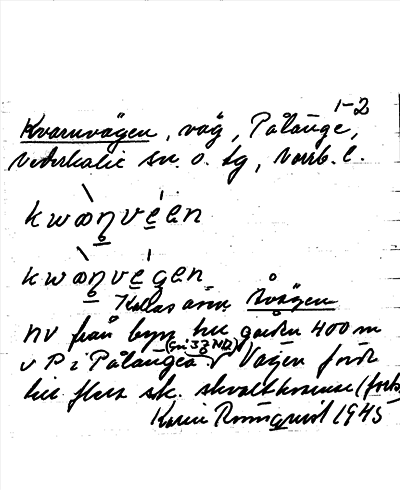 1-2
Kvarnvägen, väg, Pålänge,
Nederkalix sn. o. tg, Norrb. l.
kwaṇvéen
kwaṇvegen
Kallas även Åvägen
NV från byn till gården 400 m
v P i Pålänge. Vägen förde
till flera sk. skvaltkvarnar (forts
Karin Rönnquist 1945